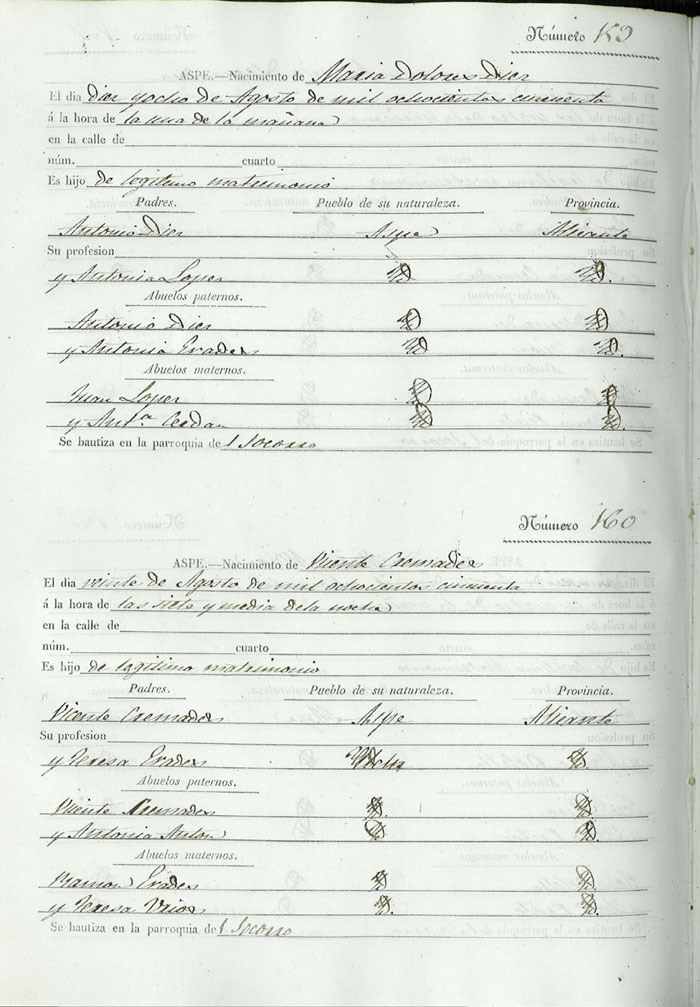 Número 159
ASPE.—Nacimiento de Maria Dolores Dies
El dia diez y ocho de Agosto de mil ochocientos cincuenta
á la hora de la una de la mañana
en la calle de
núm. cuarto
Es hijo de legitimo matrimonio
Padres. Pueblo de su naturaleza. Provincia.
Antonio Dies Aspe Alicante
Su profesion
y Antonia Lopes
Abuelos paternos.
Antonio Dies
y Antonia Erades
Abuelos maternos.
Juan Lopes
y Antª Cerdan
Se bautiza en la parroquia del Socorro
Número 160
ASPE.—Nacimiento de Vicente Cremades
El dia veinte de Agosto de mil ochocientos cincuenta
á la hora de las siete y media de la noche
en la calle de
núm. cuarto
Es hijo de legitimo matrimonio
Padres. Pueblo de su naturaleza. Provincia.
Vicente Cremades Aspe Alicante
Su profesion
y Teresa Erades
Abuelos paternos.
Vicente Cremades
y Antonia Anton
Abuelos maternos.
Ramon Erades
y Teresa Urios
Se bautiza en la parroquia del Socorro